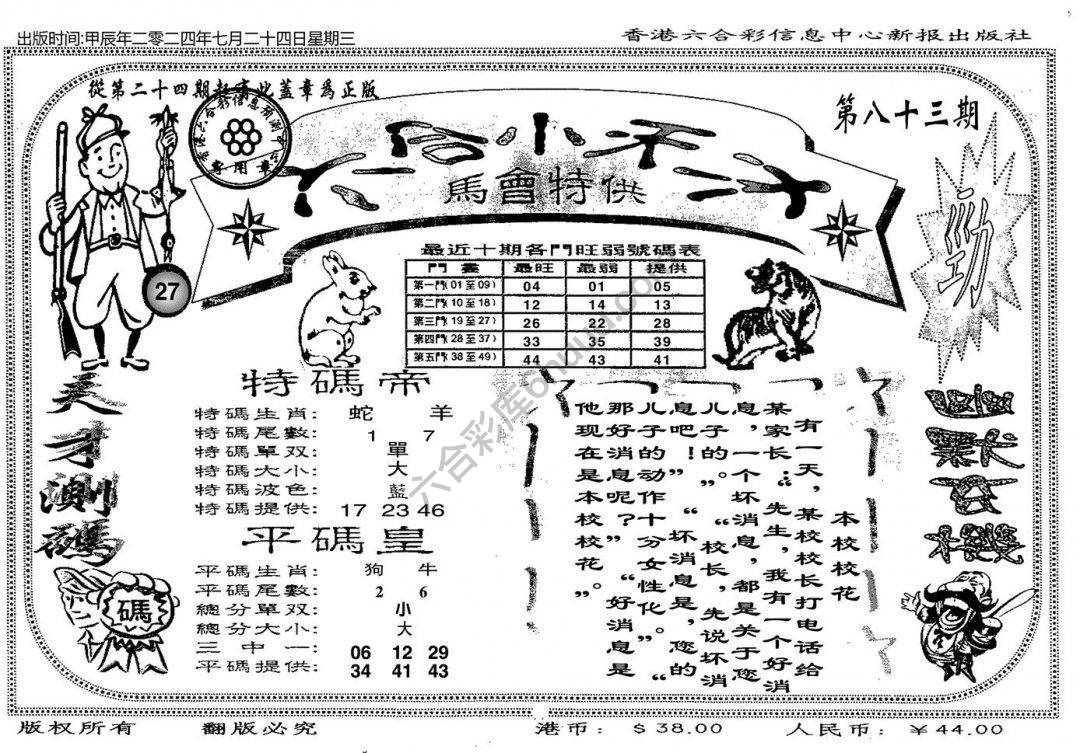 出版时间:甲辰年二零二四年七月二十四日星期三
香港六合彩信息中心新报出版社
從第二十四期起亊此蓋章爲正版
第八十三期
馬會特供
27
勁
最近十期各門旺弱號碼表
門畫 最旺 最弱 提供
第一門(01至09) 04 01 05
第二門(10至18) 12 14 13
第三門(19至27) 26 22 28
第四門(28至37) 33 35 39
第五門(38至49) 44 43 41
天才測碼
碼
特碼帝
特碼生肖: 蛇 羊
特碼尾數: 1 7
特碼單双: 單
特碼大小: 大
特碼波色: 藍
特碼提供: 17 23 46
平碼皇
平碼生肖: 狗 牛
平碼尾數: 2 6
總分單双: 小
總分大小: 大
三中一: 06 12 29
平碼提供: 34 41 43
幽默玄機
本校校花
有一天,某校校长打电话给
某家长:“先生,我有一个好消
息,一个坏消息,都是关于您
儿子的。”“校长,先说坏消
息吧!”“坏消息是,您的
儿子的动作十分女性化。”
那好消息呢?”“好消息是
他现在是本校校花。”
六合彩库6huuu.com
版权所有 翻版必究 港币: $38.00 人民币: ¥44.00